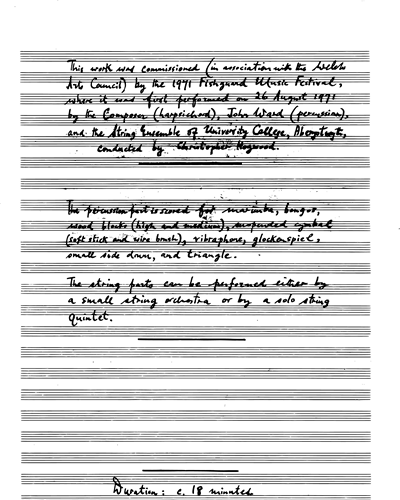 This work was commissioned (in association with the Welsh
Arts Council) by the 1971 Fishguard Music Festival,
where it was first performed on 26 August 1971
by the Composer (harpsichord), John Ward (percussion),
and the String Ensemble of University College, Aberystwyth,
conducted by Christopher Hogwood.
The percussion part is scored for marimba, bongos,
wood blocks (high and medium), suspended cymbal
(soft stick and wire brush), vibraphone, glockenspiel,
small side drum, and triangle.
The string parts can be performed either by
a small string orchestra or by a solo string
quintet.
Duration: c. 18 minutes